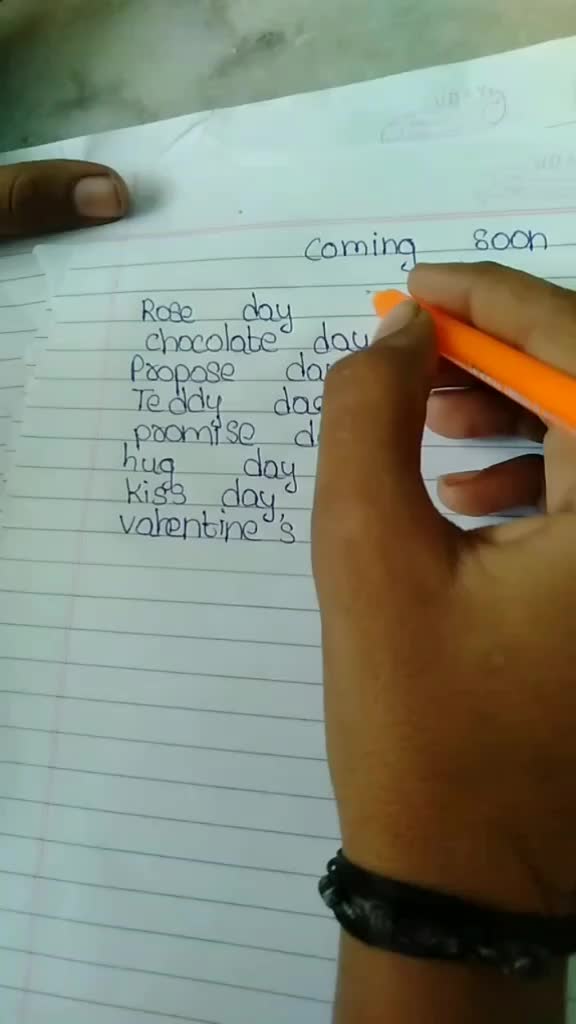 Coming soon
Rose day
chocolate day
Propose day
Teddy day
promise
hug day
kiss day
valentine's